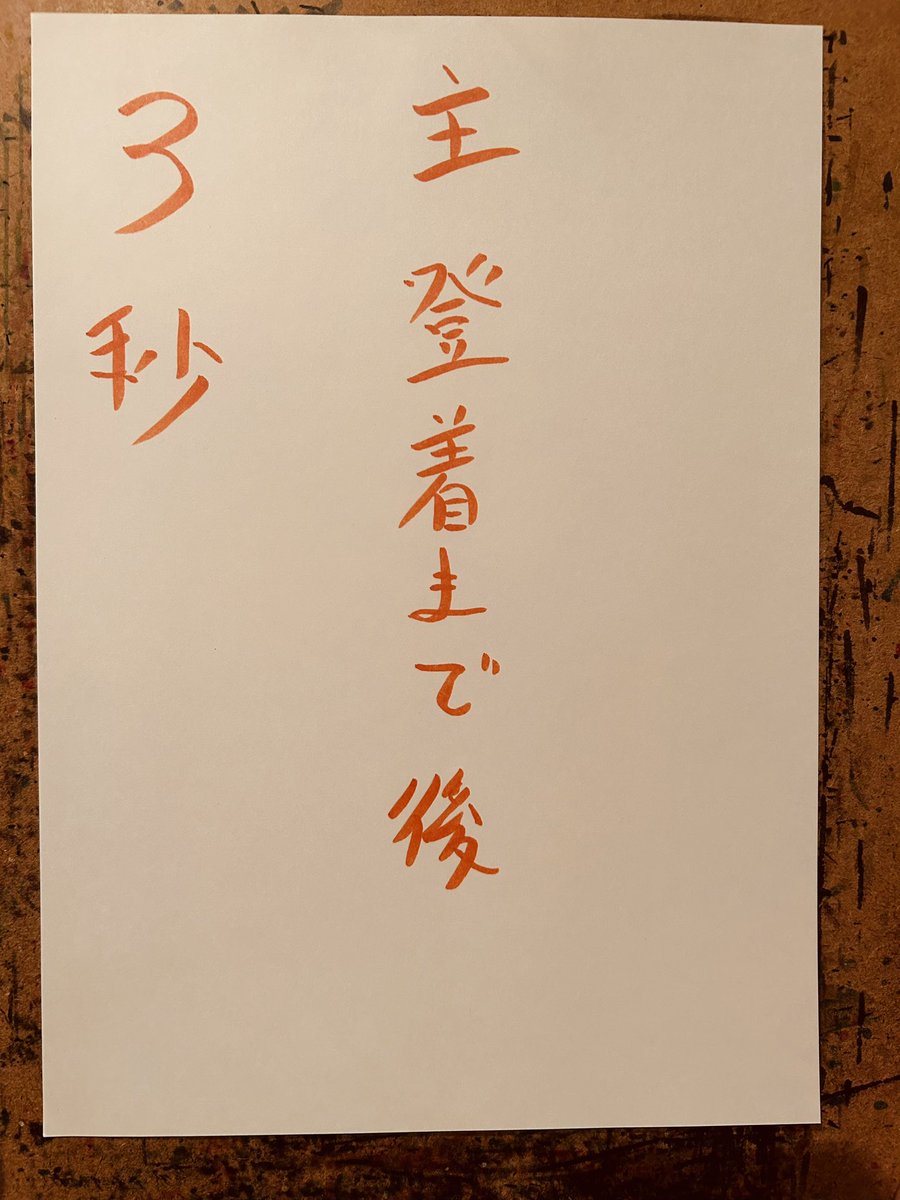 主登着まで後
3秒